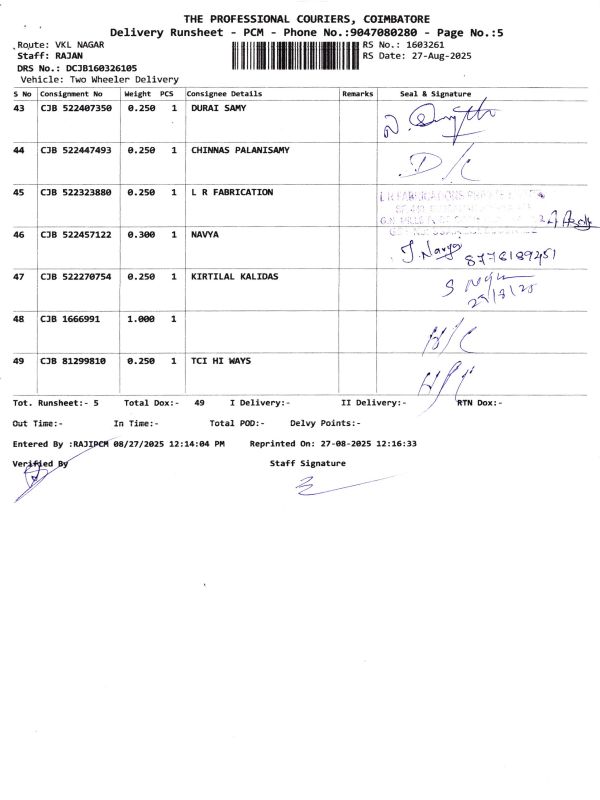 THE PROFESSIONAL COURIERS, COIMBATORE
Delivery Runsheet - PCM - Phone No.:9047080280 - Page No.:5
Route: VKL NAGAR RS No.: 1603261
Staff: RAJAN RS Date: 27-Aug-2025
DRS No.: DCJB160326105
Vehicle: Two Wheeler Delivery
S No Consignment No Weight PCS Consignee Details Remarks Seal & Signature
43 CJB 522407350 0.250 1 DURAI SAMY
44 CJB 522447493 0.250 1 CHINNAS PALANISAMY D/C
45 CJB 522323880 0.250 1 L R FABRICATION
46 CJB 522457122 0.300 1 NAVYA J. Navya 8778189251
47 CJB 522270754 0.250 1 KIRTILAL KALIDAS S
48 CJB 1666991 1.000 1
49 CJB 81299810 0.250 1 TCI HI WAYS
Tot. Runsheet:- 5 Total Dox:- 49 I Delivery:- II Delivery:- RTN Dox:-
Out Time:- In Time:- Total POD:- Delvy Points:-
Entered By :RAJIPCM 08/27/2025 12:14:04 PM Reprinted On: 27-08-2025 12:16:33
Verified By Staff Signature